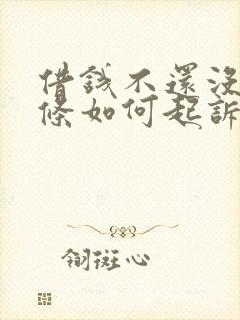 借錢不還沒
條如何起訴
翎斑心